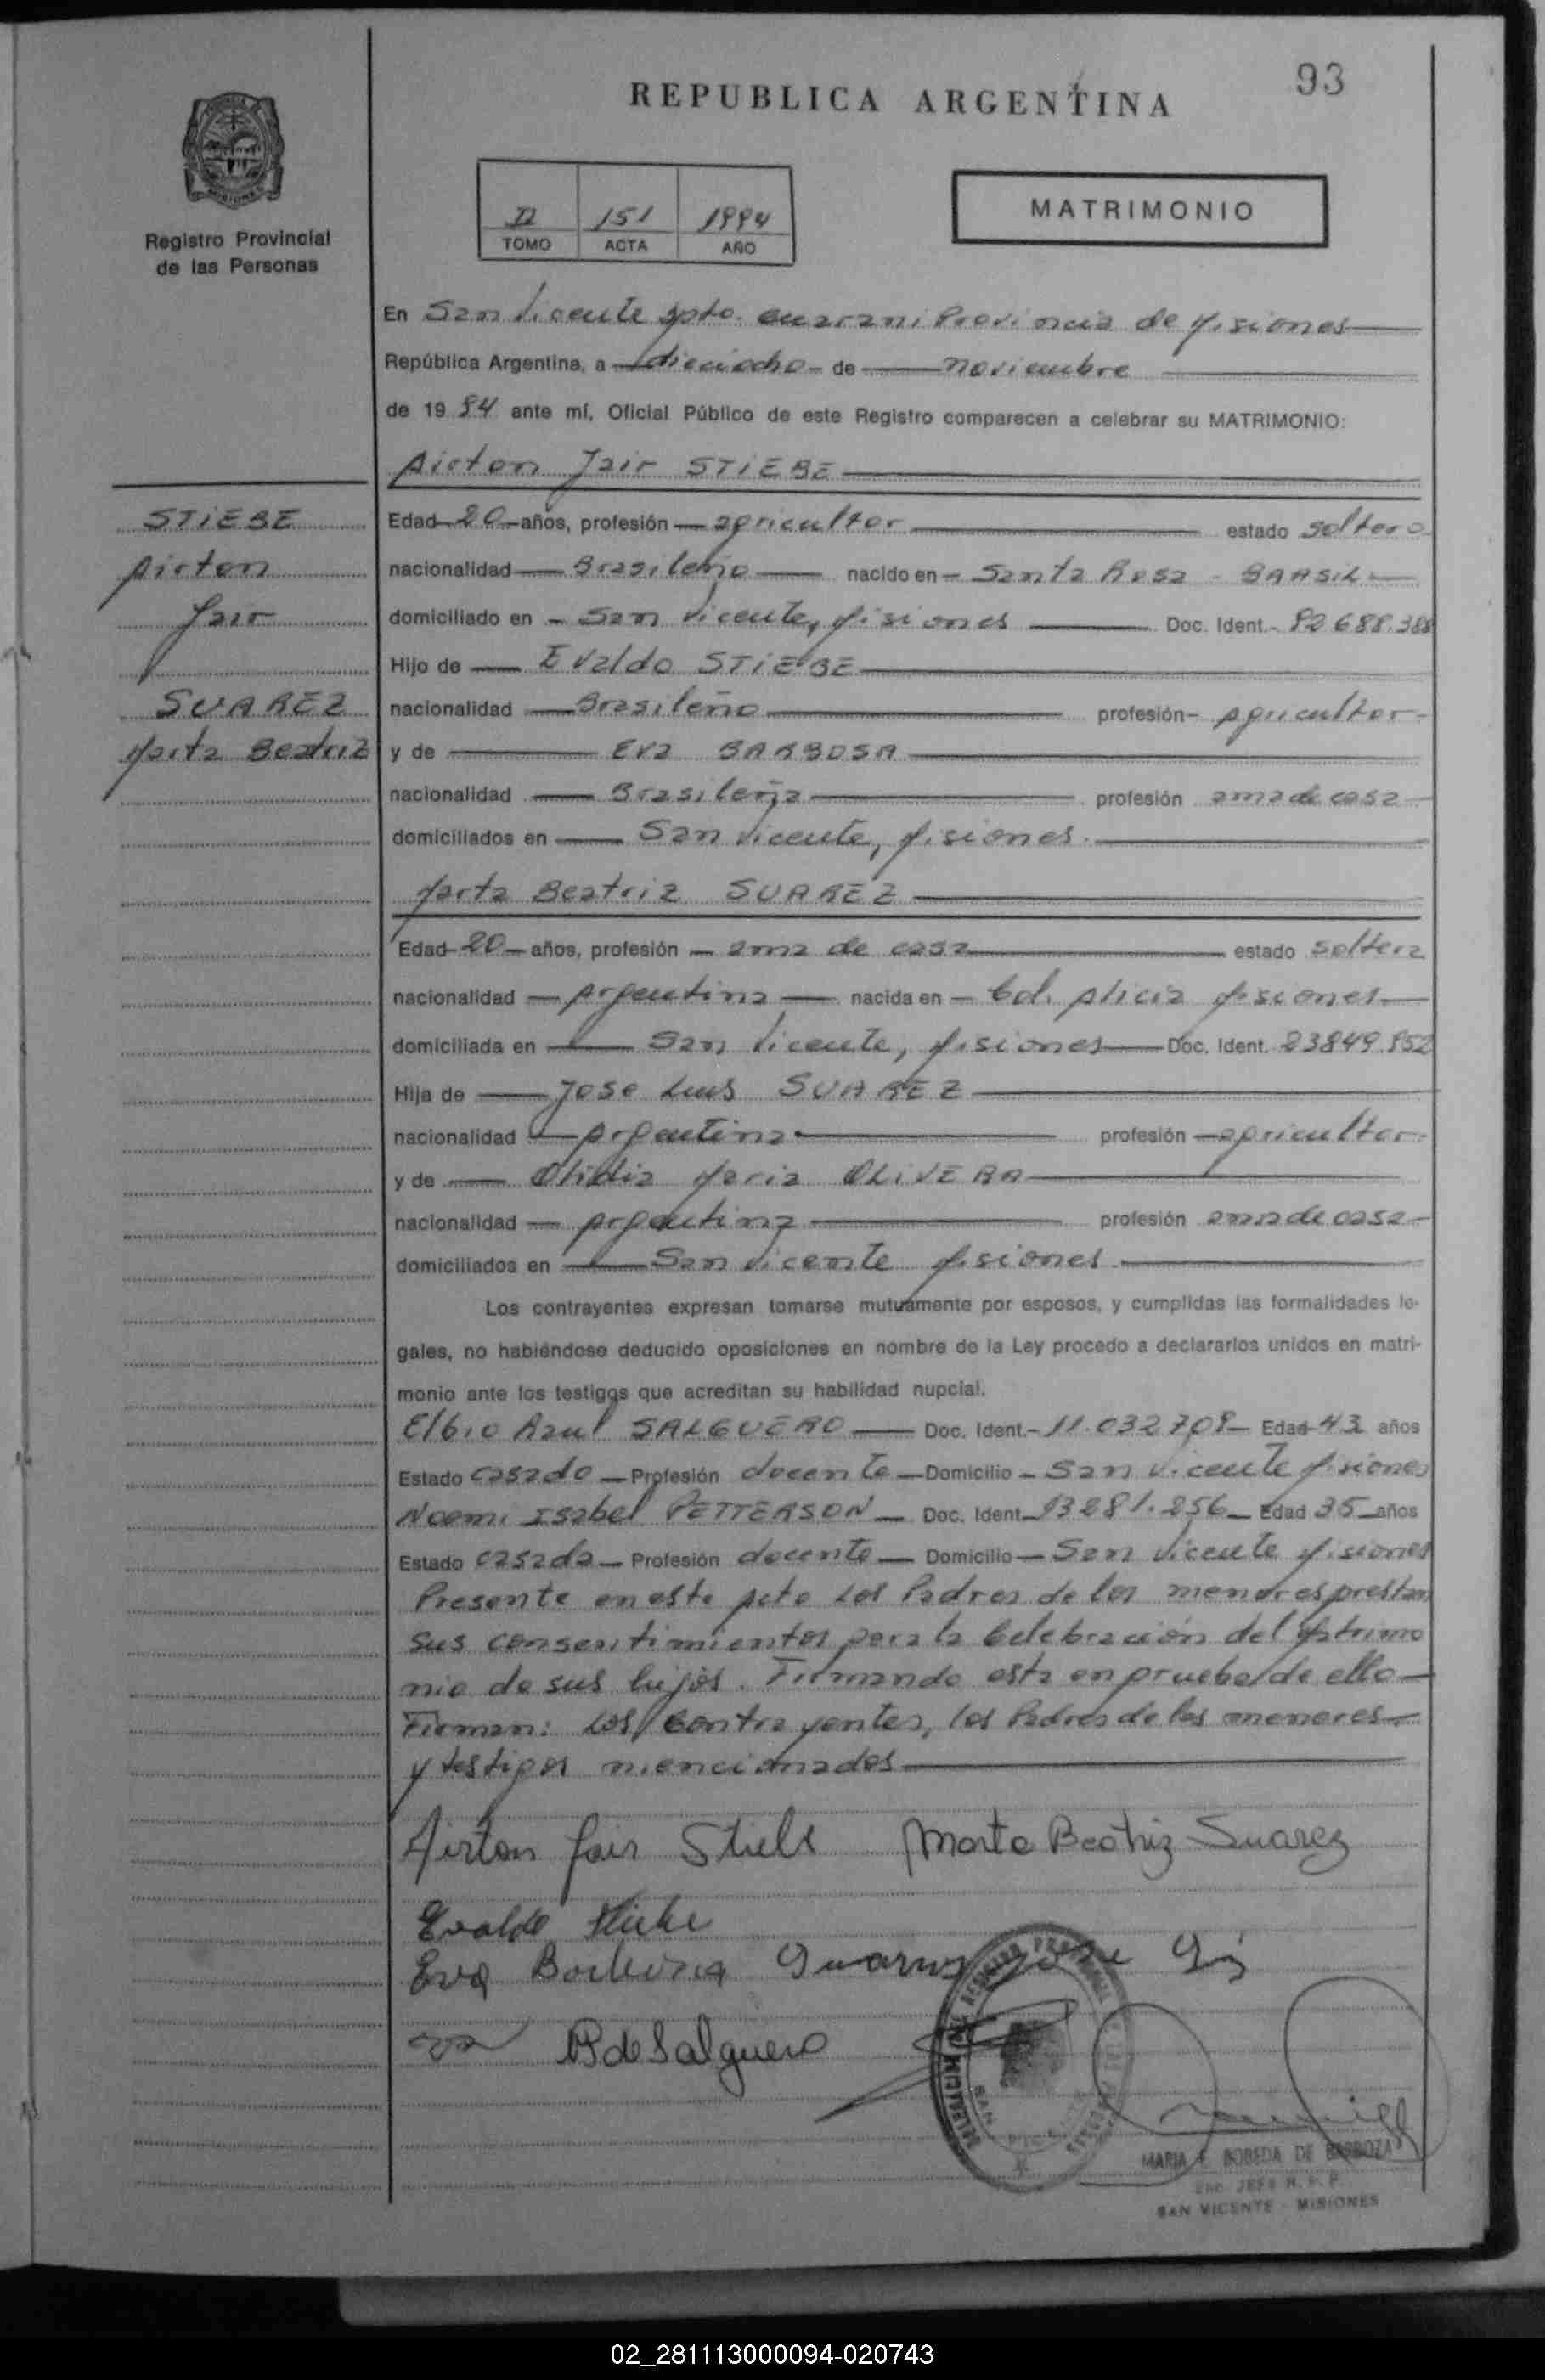 93
REPUBLICA ARGENTINA
Registro Provincial
de las Personas
II 151 1994
TOMO ACTA AÑO
MATRIMONIO
En San Vicente Dpto. Guarani Provincia de Misiones
República Argentina, a dieciocho de noviembre
de 19 94 ante mí, Oficial Público de este Registro comparecen a celebrar su MATRIMONIO:
Airton Jair STIEBE
STIEBE
Airton
Jair
SUAREZ
Marta Beatriz
Edad 20 años, profesión agricultor estado soltero
nacionalidad Brasileño nacido en Santa Rosa - BRASIL
domiciliado en San Vicente, Misiones Doc. Ident. 92688.388
Hijo de Evaldo STIEBE
nacionalidad Brasileño profesión Agricultor
y de Eva BARBOSA
nacionalidad Brasileña profesión ama de casa
domiciliados en San Vicente, Misiones.
Marta Beatriz SUAREZ
Edad 20 años, profesión ama de casa estado soltera
nacionalidad Argentina nacida en Col. Alicia Misiones
domiciliada en San Vicente, Misiones Doc. Ident. 23849.952
Hija de Jose Luis SUAREZ
nacionalidad Argentina profesión agricultor
y de Maria OLIVERA
nacionalidad Argentina profesión ama de casa
domiciliados en San Vicente Misiones
Los contrayentes expresan tomarse mutuamente por esposos, y cumplidas las formalidades le-
gales, no habiéndose deducido oposiciones en nombre de la Ley procedo a declararlos unidos en matri-
monio ante los testigos que acreditan su habilidad nupcial.
Elbio Raul SALGUERO Doc. Ident. 11.032709 Edad 43 años
Estado casado Profesión docente Domicilio San Vicente Misiones
Noemi Isabel PETTERSON Doc. Ident. 13281.256 Edad 35 años
Estado casada Profesión docente Domicilio San Vicente Misiones
Presente en este Acto Los Padres de los menores prestan
sus consentimientos para la Celebración del Matrimo
nio de sus hijos. Firmando esta en prueba de ello
Firman: Los Contrayentes, los Padres de los menores
y testigos mencionados
Airton Jair Stiebe Marta Beatriz Suarez
Evaldo Stiebe
Eva Barbosa Suarez Jose
P de Salguero
MARIA F. BOBEDA DE BARBOZA
ENC. JEFE R. P. P.
SAN VICENTE - MISIONES
02_281113000094-020743